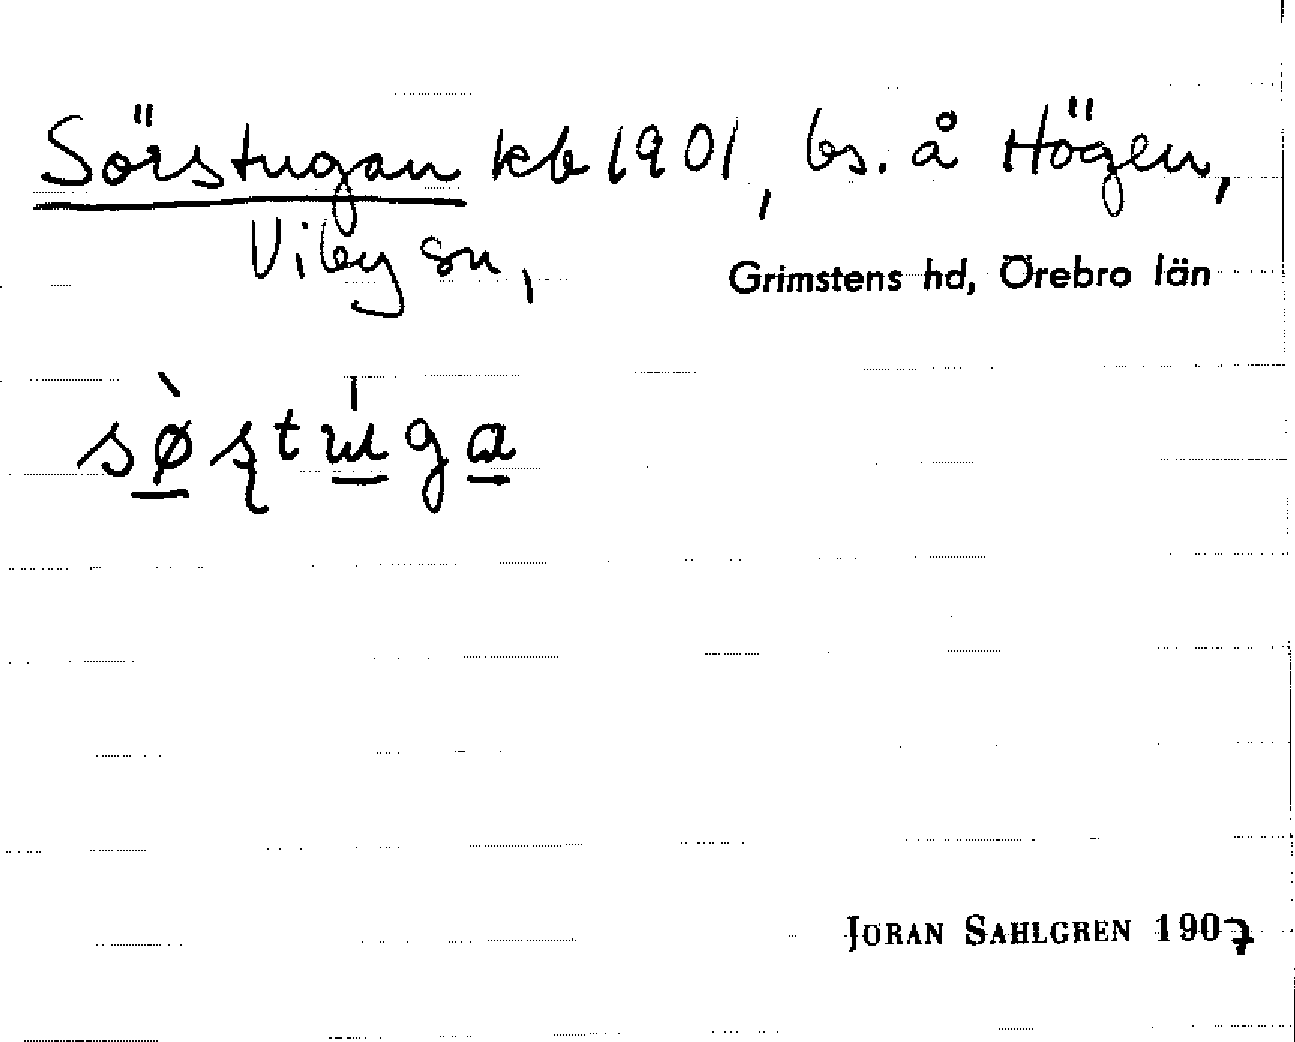 Sörstugan kb 1901, bs. å Högen,
Viby sn,
Grimstens hd, Örebro län
sø̀ʂtu̍ga
JÖRAN SAHLGREN 1907